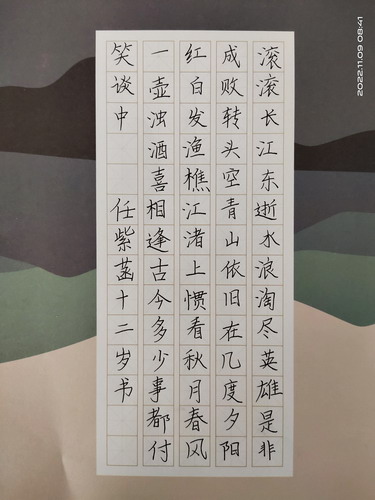 滚滚长江东逝水浪淘尽英雄是非
成败转头空青山依旧在几度夕阳
红白发渔樵江渚上惯看秋月春风
一壶浊酒喜相逢古今多少事都付
笑谈中 任紫菡十二岁书
2022.11.09 08:41